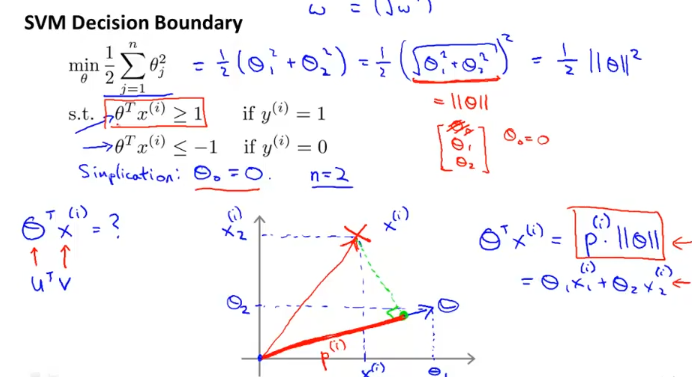 ω = (√ω)²
SVM Decision Boundary
min θ 1/2 Σ j=1 n θj² = 1/2 (θ₁² + θ₂²) = 1/2 (√θ₁² + θ₂²)² = 1/2 ||θ||²
= ||θ||
s.t. θᵀx⁽ⁱ⁾ ≥ 1 if y⁽ⁱ⁾ = 1
→ θᵀx⁽ⁱ⁾ ≤ −1 if y⁽ⁱ⁾ = 0
[θ₀ θ₁ θ₂] θ₀ = 0
Simplication: θ₀ = 0. n=2
θᵀx⁽ⁱ⁾ = ?
↑ ↑
uᵀv
x₂⁽ⁱ⁾
x⁽ⁱ⁾
θᵀx⁽ⁱ⁾ = p⁽ⁱ⁾ · ||θ|| ←
= θ₁x₁⁽ⁱ⁾ + θ₂x₂⁽ⁱ⁾ ←
θ₂
θ
p⁽ⁱ⁾
x⁽ⁱ⁾
θ₁